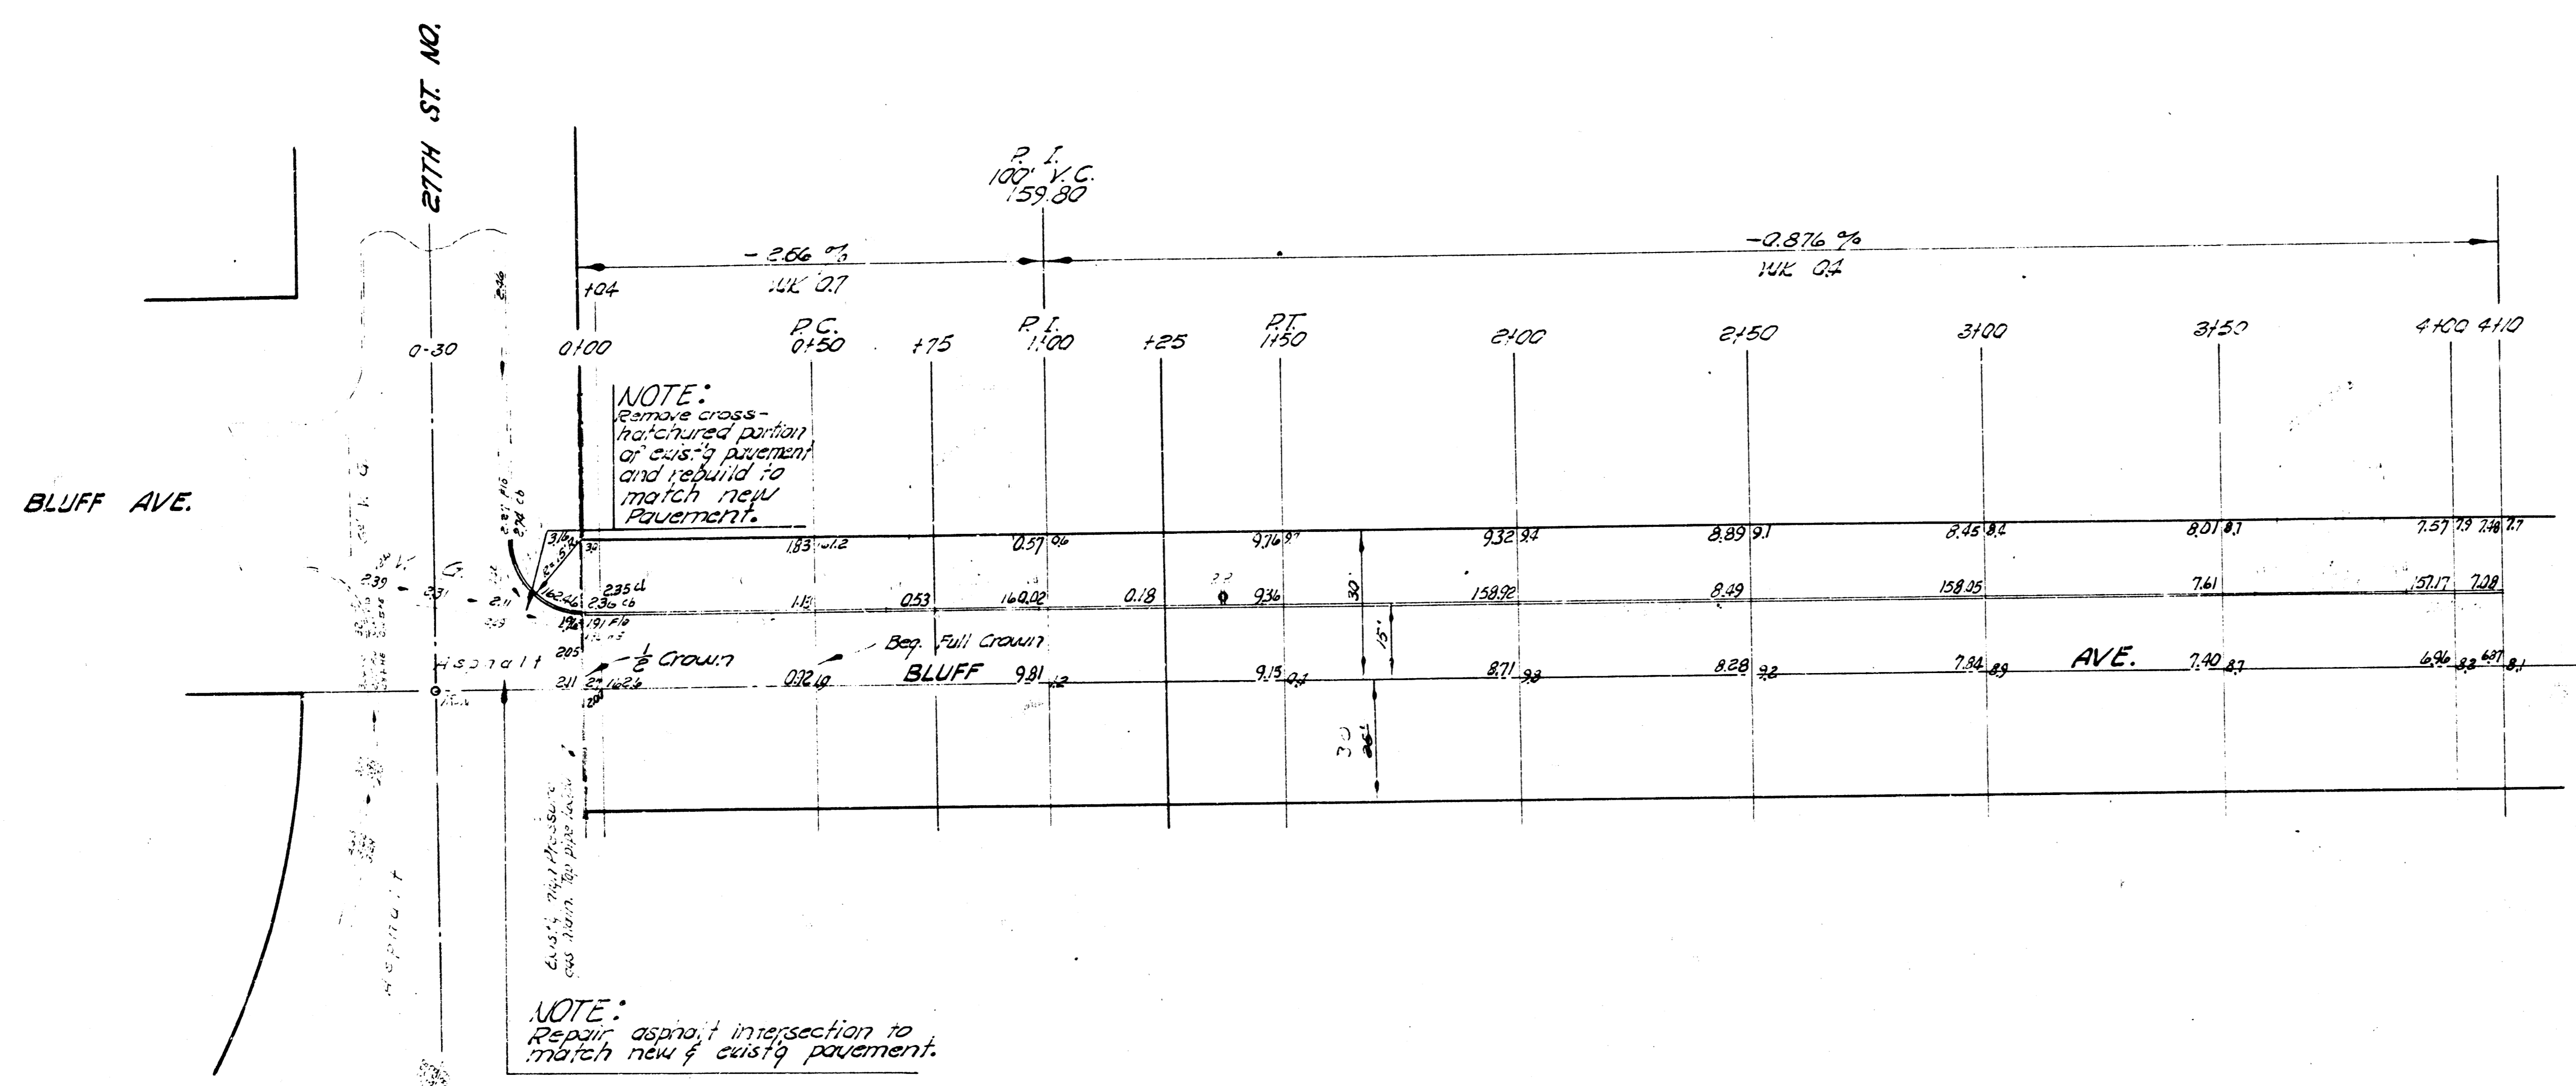 27TH ST. NO.
P. I.
100' V.C.
159.80
- 2.66 %
-0.876 %
+04
WK 0.7
WK 0.4
P.C.
P. I.
P.T.
0-30
0+00
0+50
+75
1+00
+25
1+50
2+00
2+50
3+00
3+50
4+00
4+10
NOTE:
Remove cross-
hatchured portion
of exist'g pavement
and rebuild to
match new
Pavement.
BLUFF AVE.
2.74 cb
3.16
1.83
0.57 0.6
9.76
9.32 9.4
8.89 9.1
8.45 8.4
8.01 8.7
7.57 7.9 7.48 7.7
30'
162.46
2.35 cb
2.36 cb
1.13
0.53
160.02
0.18
9.36
158.92
8.49
158.05
7.61
157.17 7.08
2.39
2.31
2.11
1.96
1.91 Flo
15'
Asphalt
2.05
1/2 Crown
Beg. Full Crown
2.11
162.6
0.92
BLUFF
9.81
9.15
8.71 9.8
8.28 9.2
7.84 8.9
AVE.
7.40 8.7
6.96 8.3 6.87 8.1
30
26'
Exist'g High Pressure
Gas Main. Top pipe
Asphalt
NOTE:
Repair asphalt intersection to
match new & exist'g pavement.